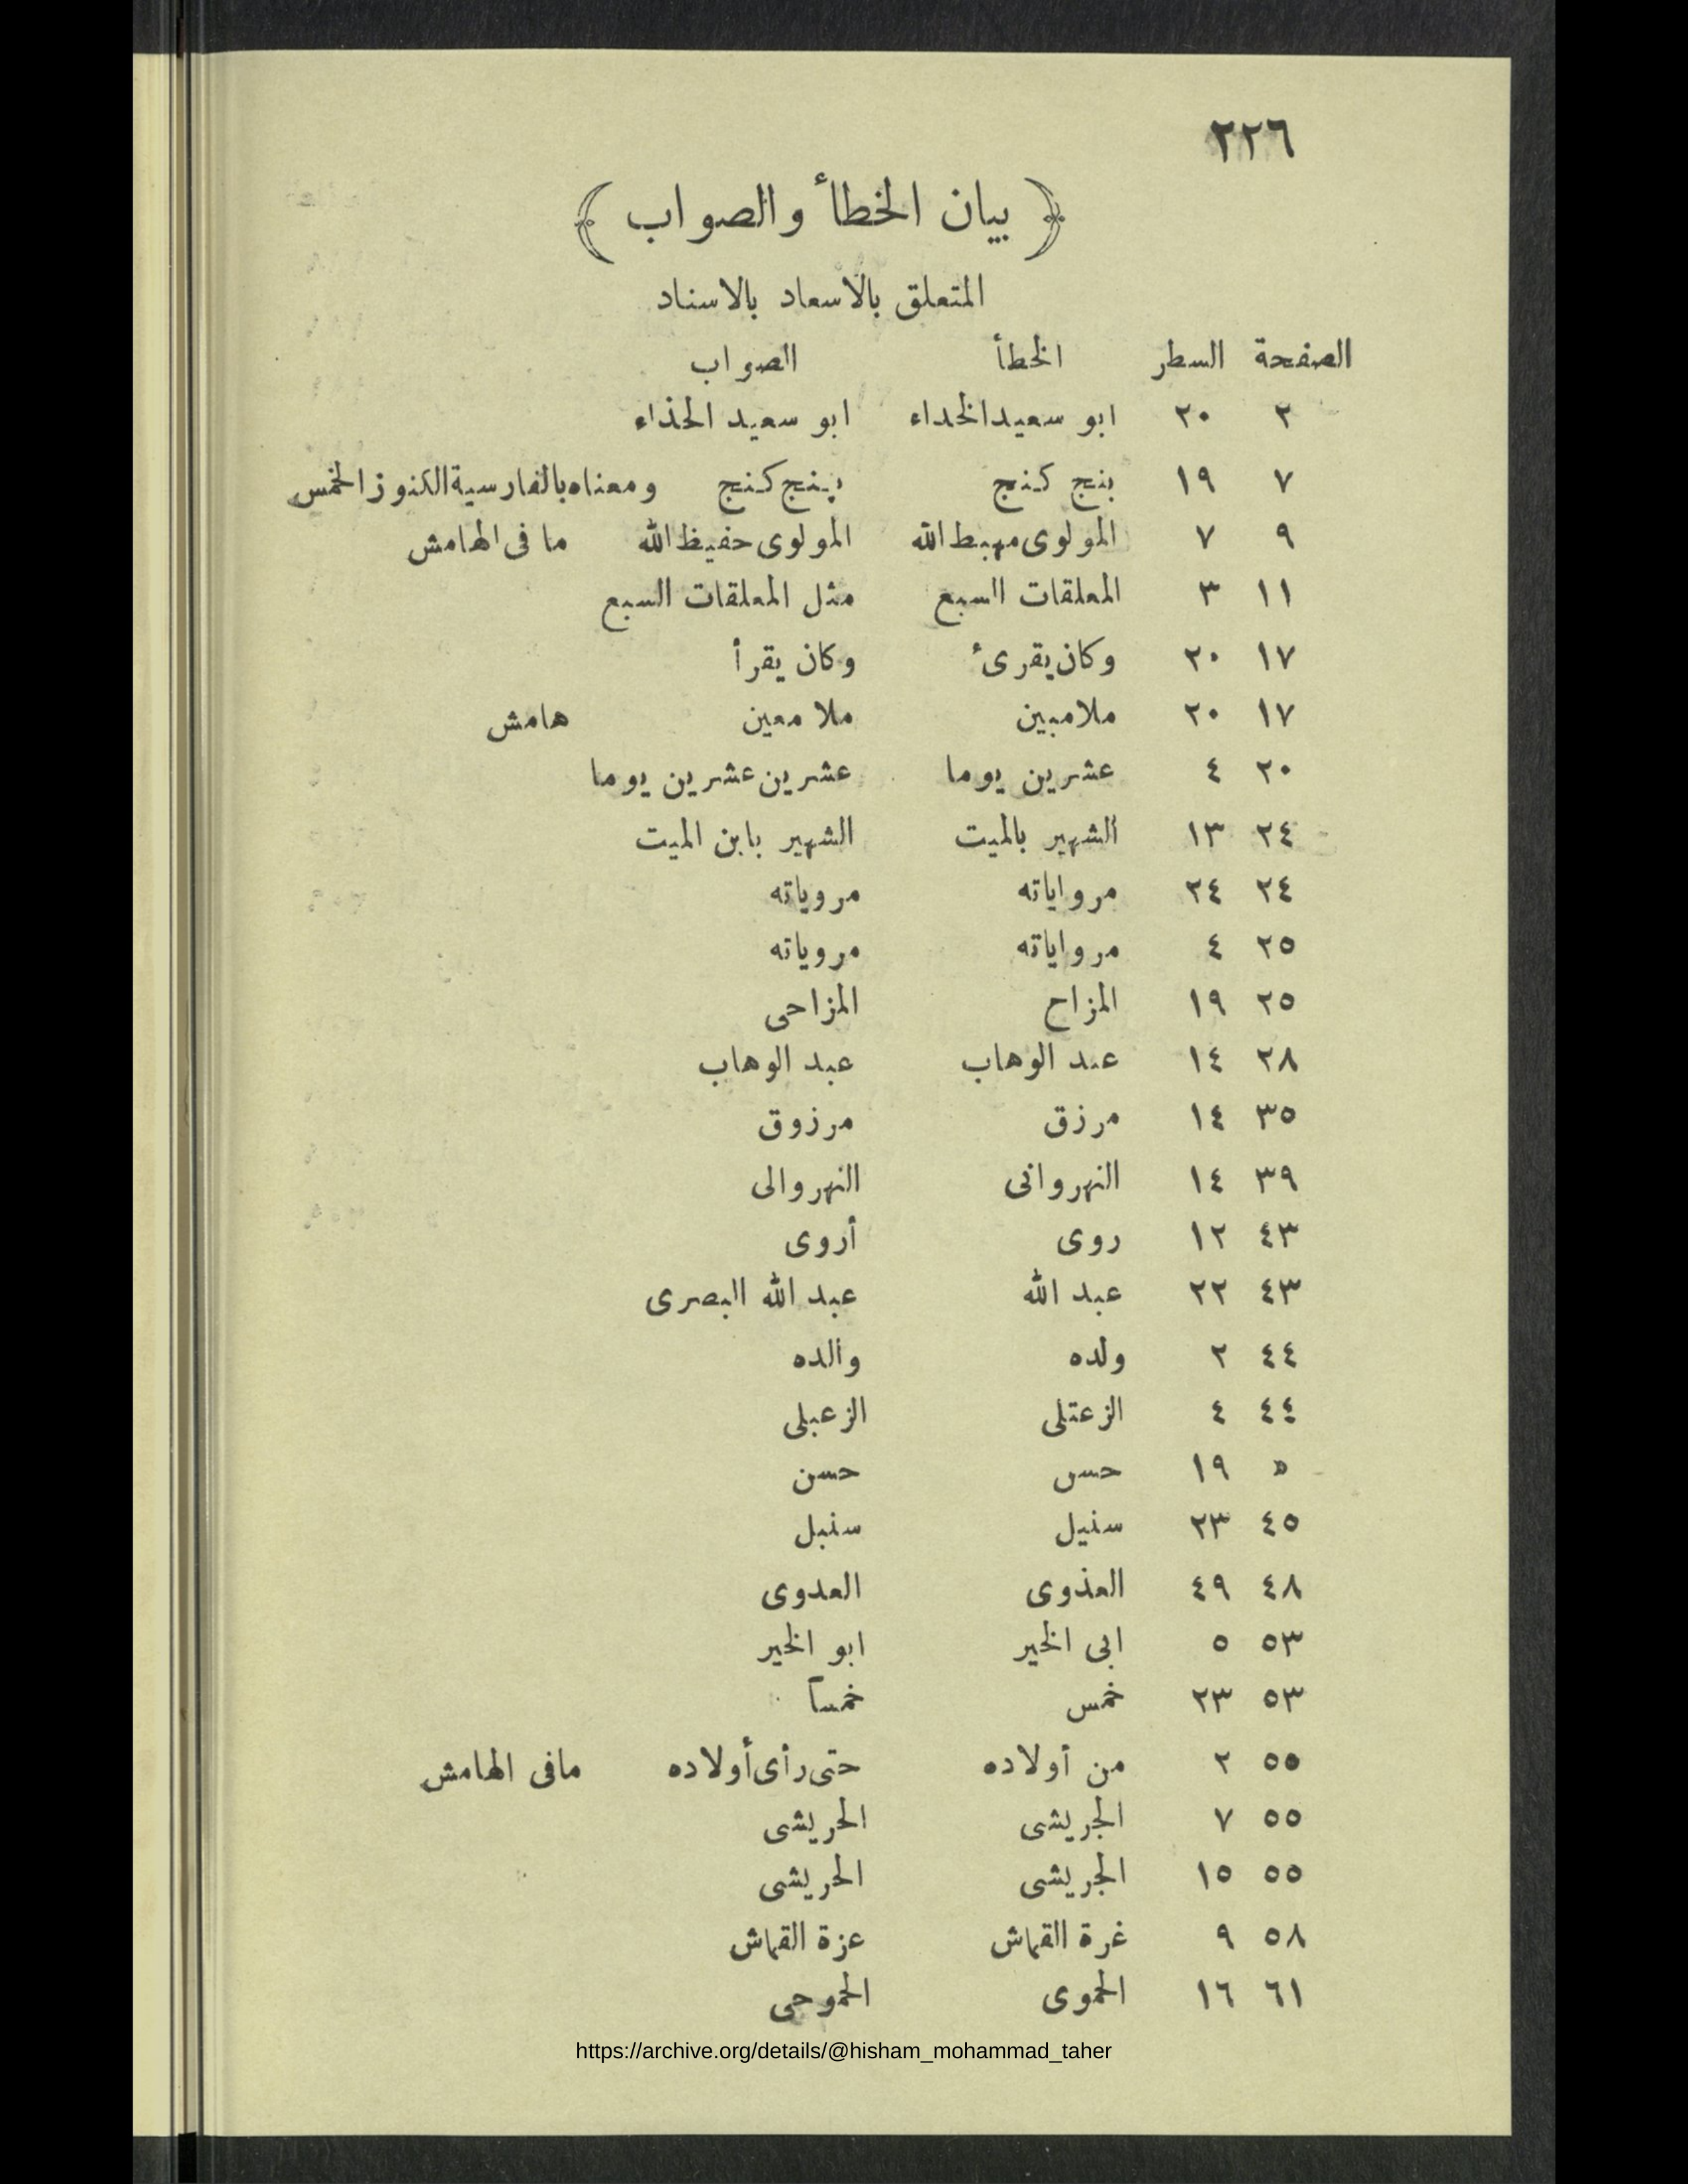 ٢٢٦
﴿ بيان الخطأ والصواب ﴾
المتعلق بالاسعاد بالاسناد
الصفحة السطر الخطأ الصواب
٢ ٢٠ ابو سعيد الخداء ابو سعيد الحذاء
٧ ١٩ بنج كنج پنج كنج ومعناه بالفارسية الكنوز الخمس
٩ ٧ المولوى مهبط الله المولوى حفيظ الله ما فى الهامش
١١ ٣ المعلقات السبع مثل المعلقات السبع
١٧ ٢٠ وكان يقرىء وكان يقرأ
١٧ ٢٠ ملامبين ملا معين هامش
٢٠ ٤ عشرين يوما عشرين عشرين يوما
٢٤ ١٣ الشهير بالميت الشهير بابن الميت
٢٤ ٢٤ مرواياته مروياته
٢٥ ٤ مرواياته مروياته
٢٥ ١٩ المزاح المزاحى
٢٨ ١٤ عبد الوهاب عبد الوهاب
٣٥ ١٤ مرزق مرزوق
٣٩ ١٤ النهروانى النهروالى
٤٣ ١٢ روى أروى
٤٣ ٢٢ عبد الله عبد الله البصرى
٤٤ ٢ ولده والده
٤٤ ٤ الزعتلى الزعبلى
» ١٩ حسں حسن
٤٥ ٢٣ سنيل سنبل
٤٨ ٤٩ العذوى العدوى
٥٣ ٥ ابى الخير ابو الخير
٥٣ ٢٣ خمس خمساً
٥٥ ٢ من أولاده حتى رأى أولاده مافى الهامش
٥٥ ٧ الجريشى الحريشى
٥٥ ١٥ الجريشى الحريشى
٥٨ ٩ غرة القماش عزة القماش
٦١ ١٦ الحموى الحموحى
https://archive.org/details/@hisham_mohammad_taher